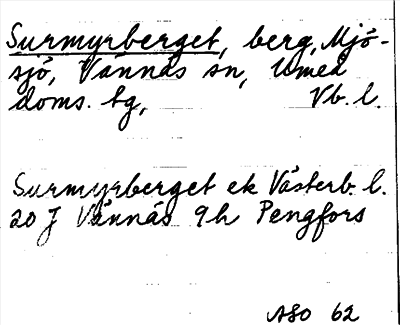 Surmyrberget, berg, Mjö-
sjö, Vännäs sn, Umeå
doms. tg, Vb. l.
Surmyrberget ek Västerb. l.
20 J Vännäs 9h Pengfors
ASO 62